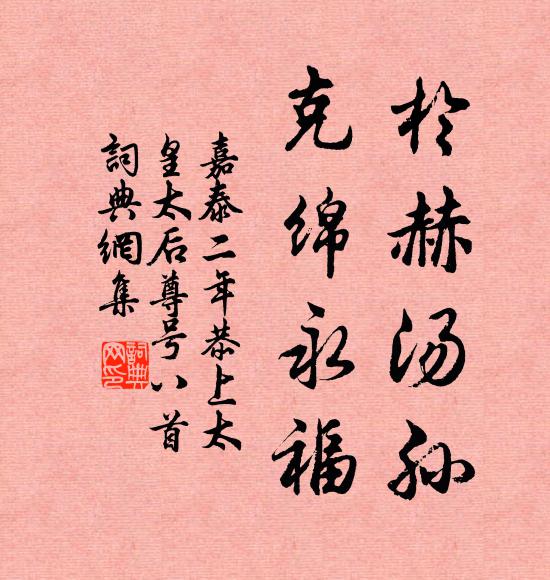 於赫汤孙
克绵永福
嘉泰二年恭上太
皇太后尊号八首
詞典網集
詞典网印